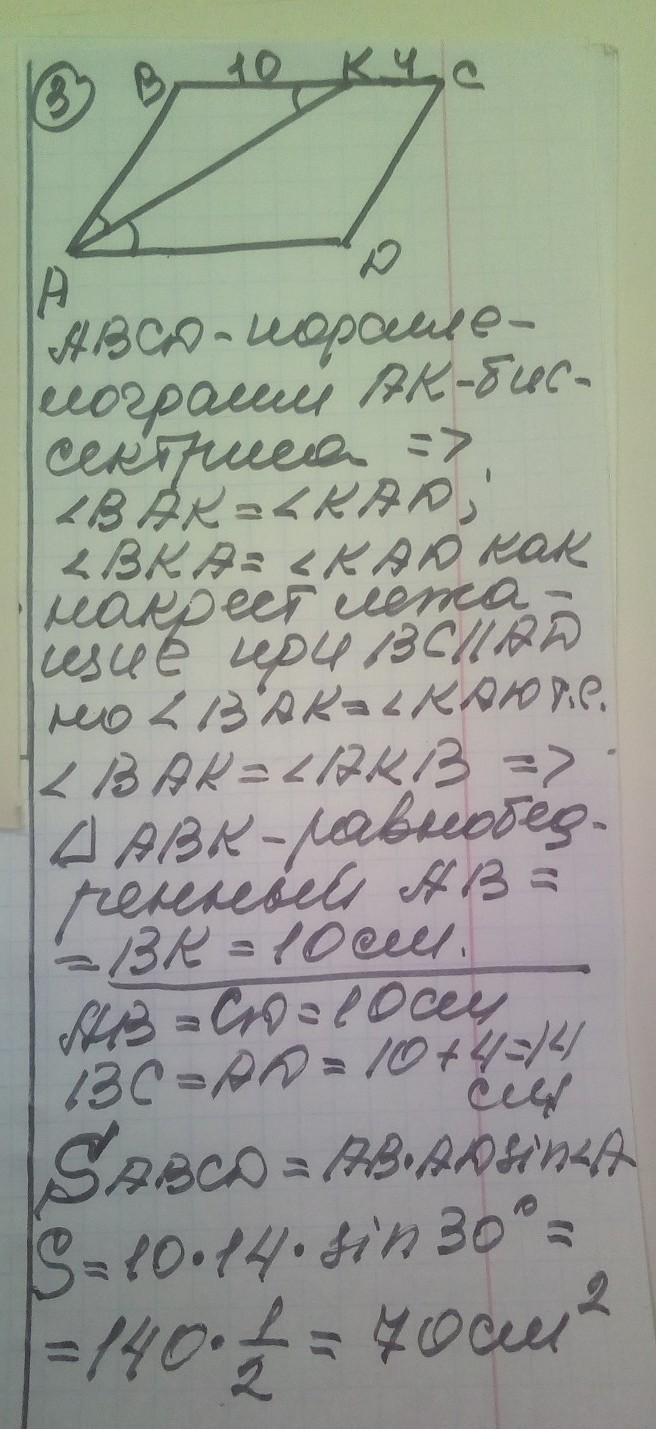 3 B 10 K 4 C
A D
ABCD - паралле-
лограмм AK - бис-
сектриса =>
∠BAK = ∠KAD;
∠BKA = ∠KAD как
накрест лежа-
щие при BC || AD
но ∠BAK = ∠KAD т.е.
∠BAK = ∠AKB =>
△ABK - равнобед-
ренный AB =
= BK = 10 см.
AB = CD = 10 см
BC = AD = 10 + 4 = 14
см
SABCD = AB · AD sin∠A
S = 10 · 14 · sin 30° =
= 140 · 1/2 = 70 см²